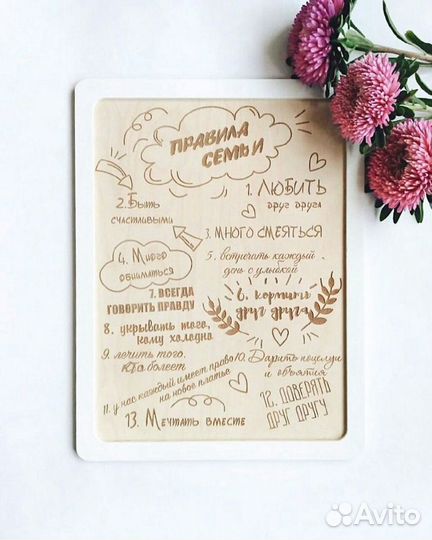 ПРАВИЛА
СЕМЬИ
1. ЛЮБИТЬ
друг друга
2. Быть
счастливыми
3. МНОГО СМЕЯТЬСЯ
4. Много
обниматься
5. встречать каждый
день с улыбкой
6. кормить
друг друга
7. ВСЕГДА
ГОВОРИТЬ ПРАВДУ
8. укрывать того,
кому холодно
9. лечить того,
кто болеет
10. Дарить поцелуи
и объятия
11. у нас каждый имеет право
на новое платье
12. ДОВЕРЯТЬ
ДРУГ ДРУГУ
13. Мечтать вместе
Avito